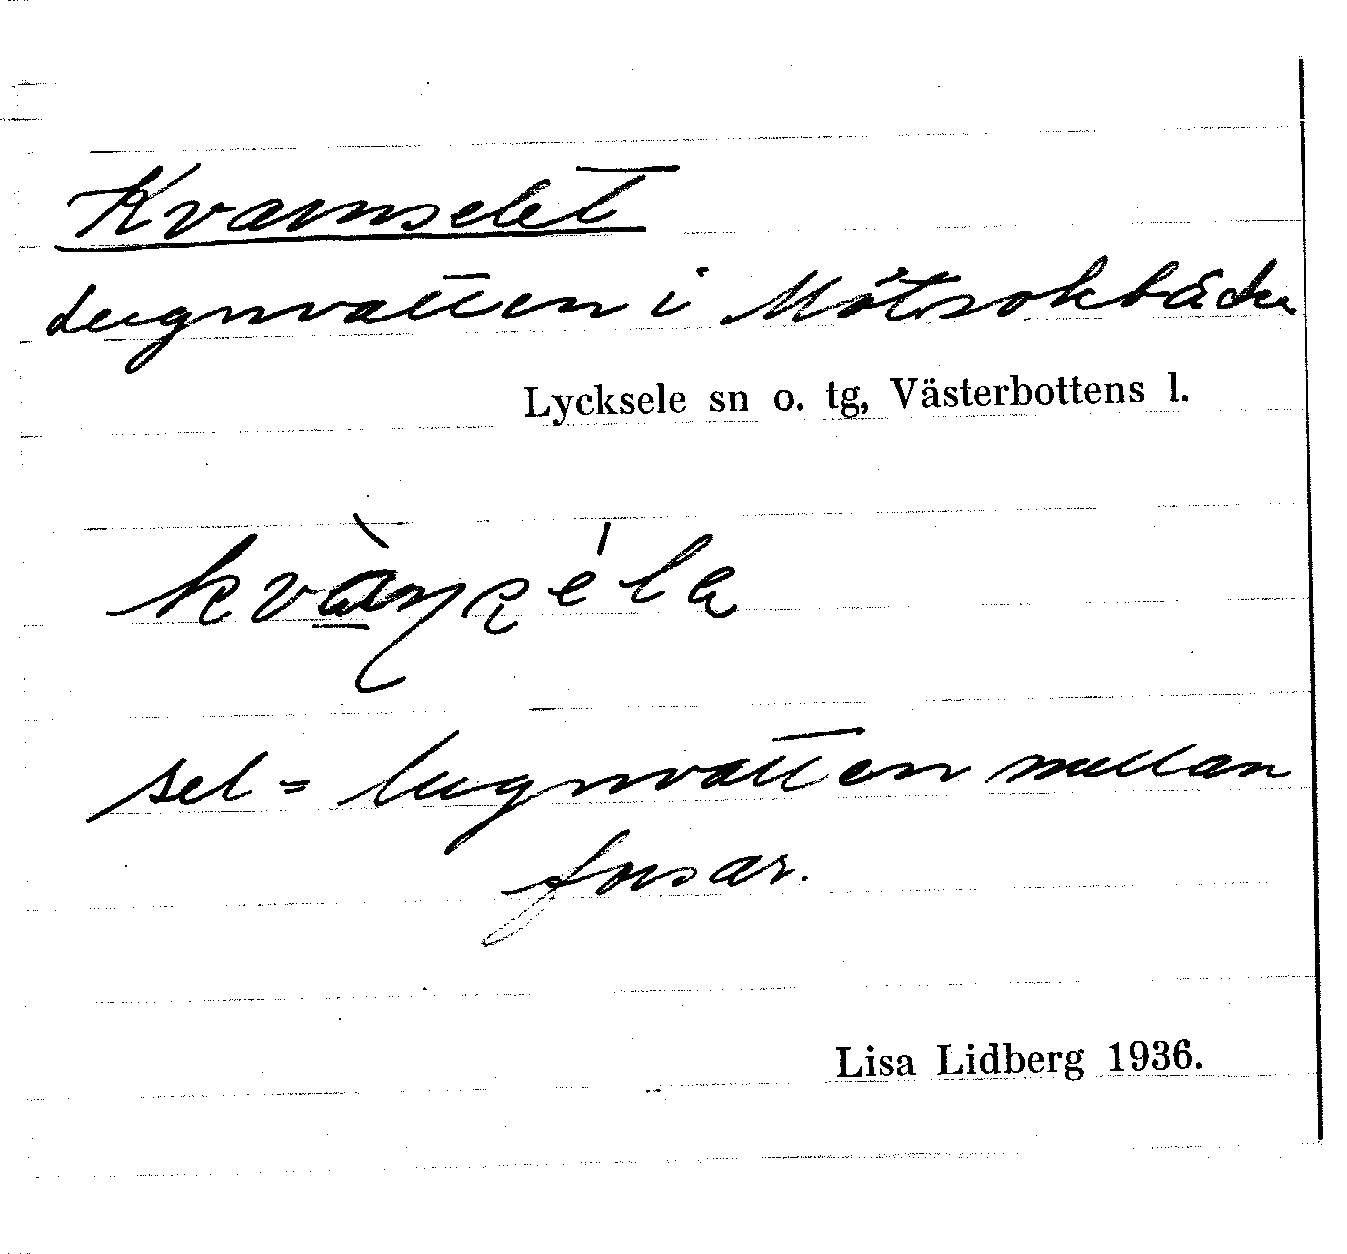 Kvarnselet
lugnvatten i Mötsokbäcken
Lycksele sn o. tg, Västerbottens l.
sel = lugnvatten mellan
forsar.
Lisa Lidberg 1936.